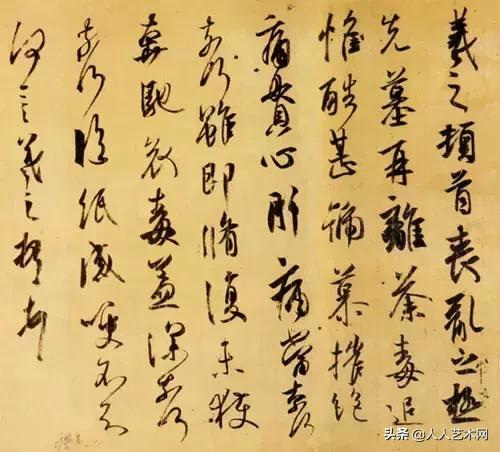 羲之頓首喪亂之極
先墓再離荼毒追
惟酷甚號慕摧絕
痛貫心肝痛當奈何
奈何雖即脩復未獲
奔馳哀毒益深奈何
奈何臨紙感哽不知
何言羲之頓首頓首
头条 @人人艺术网